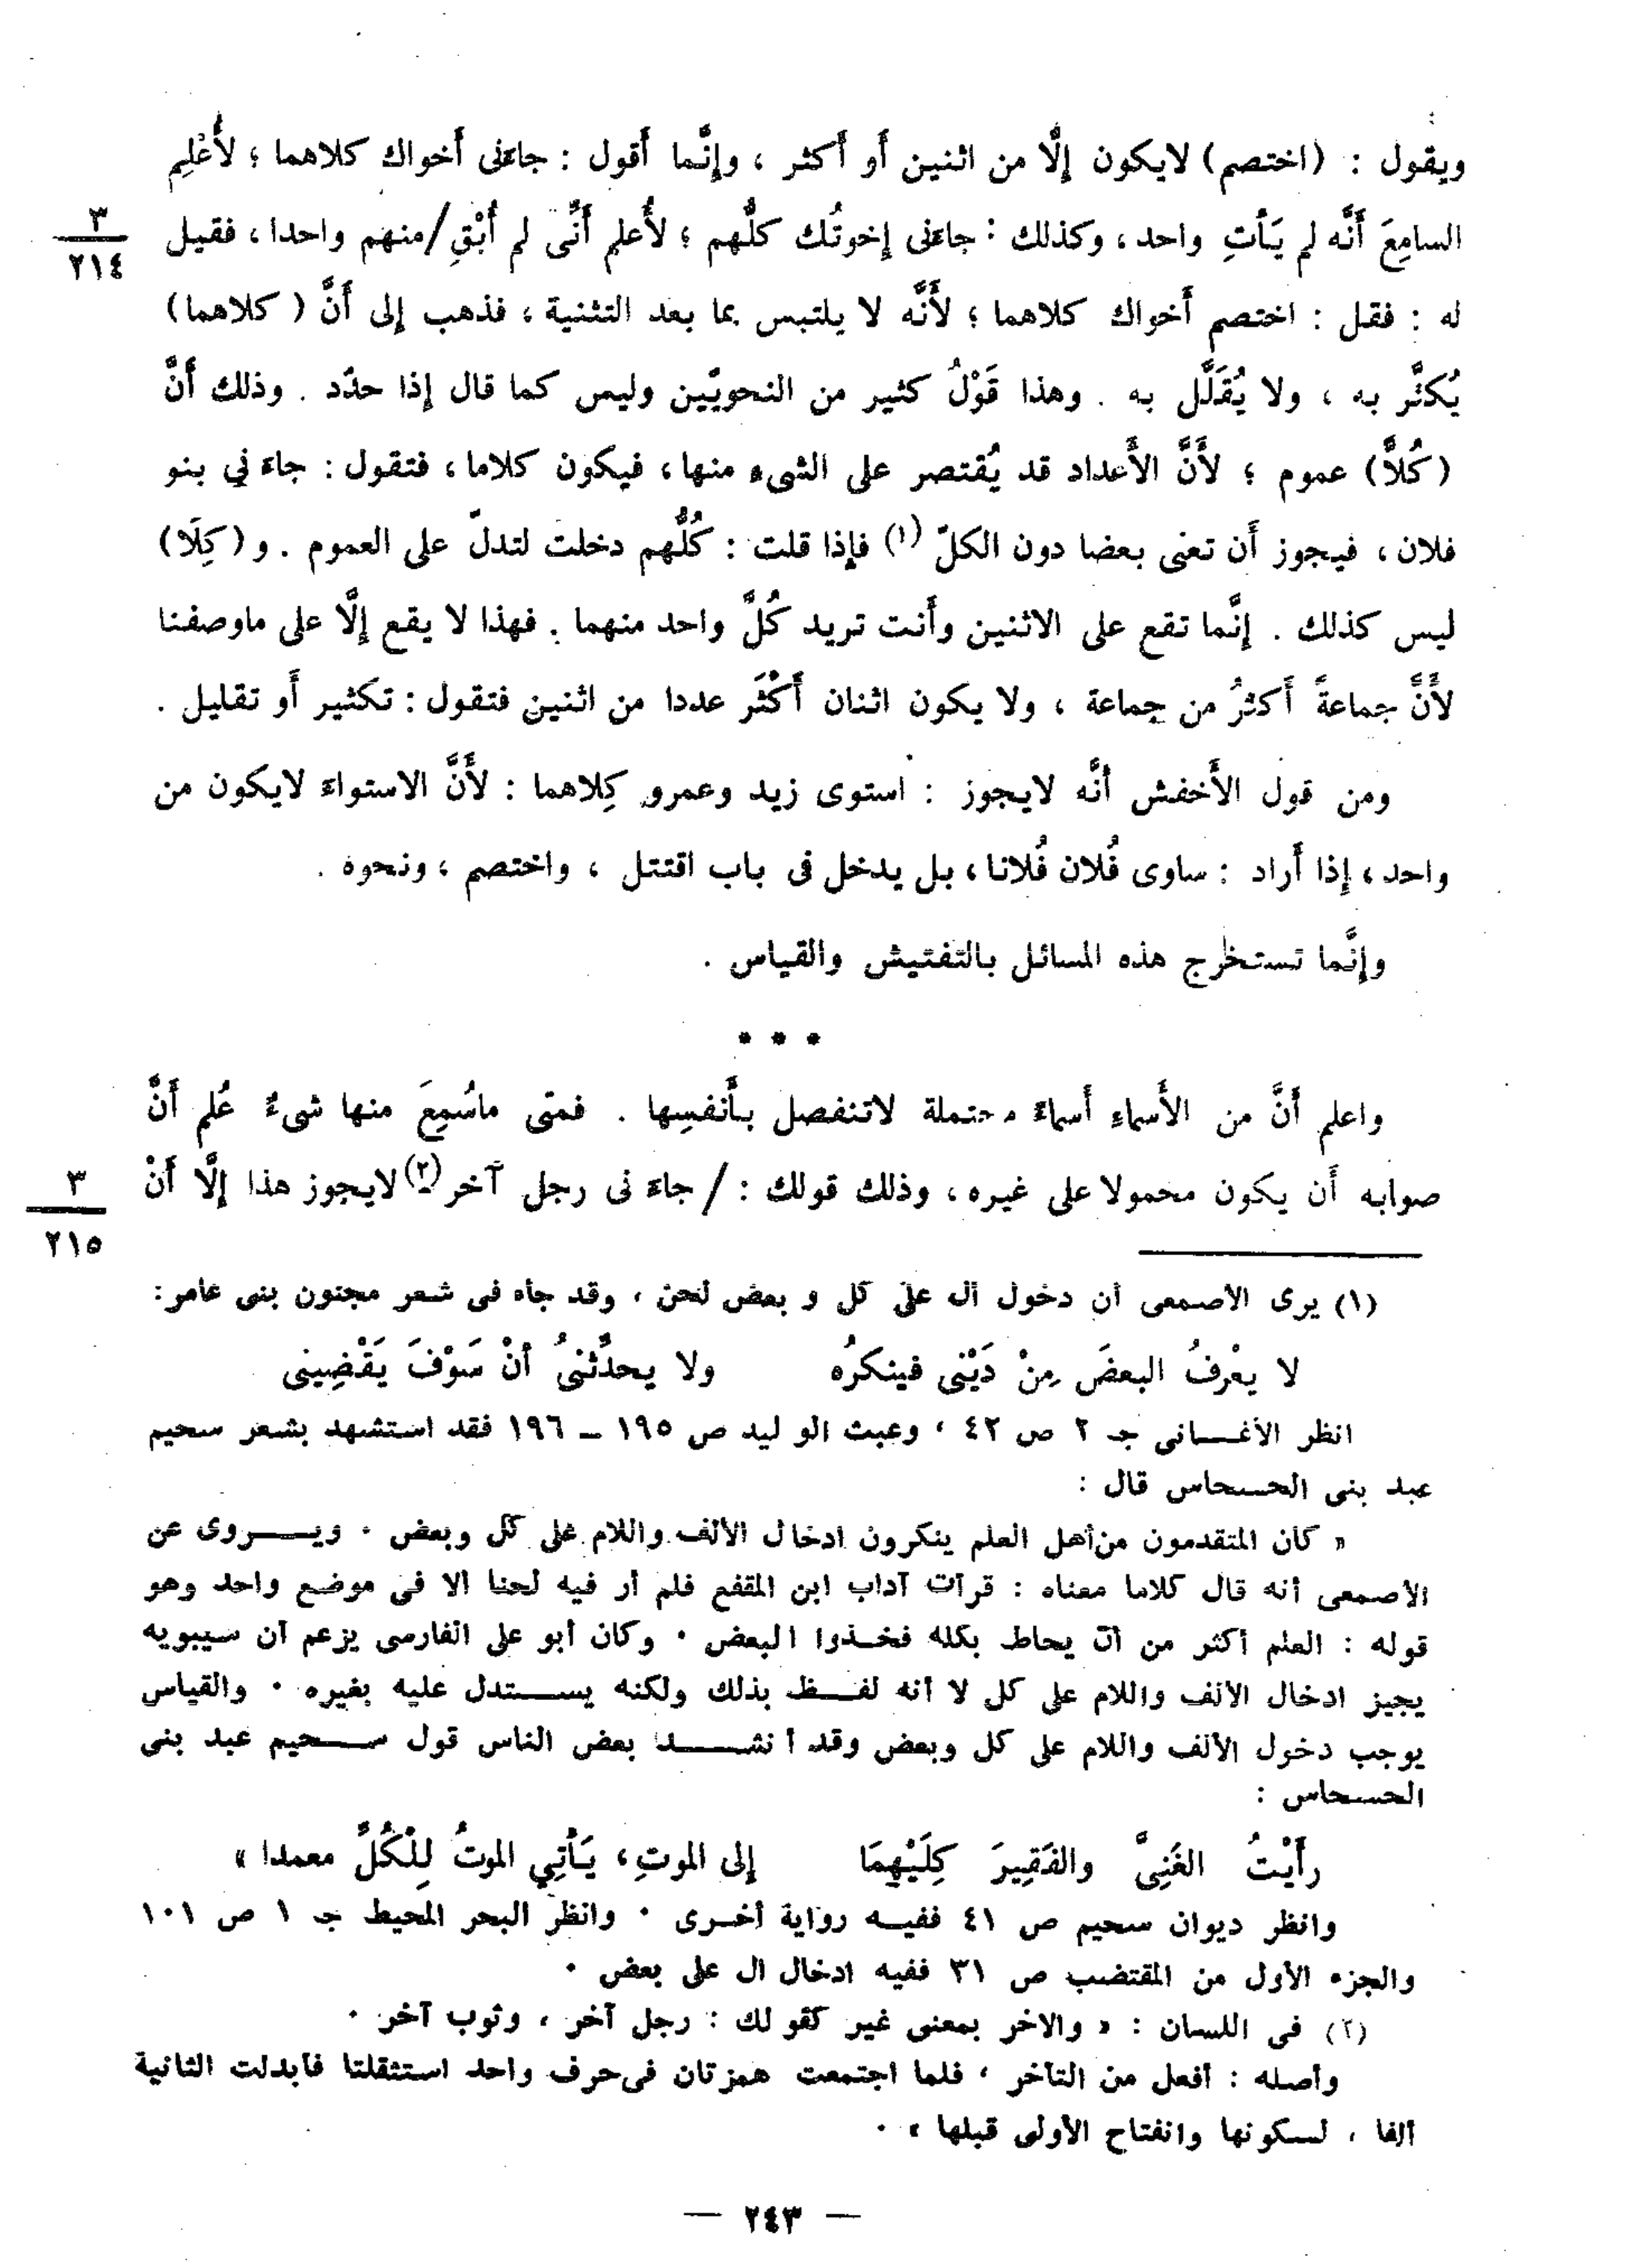 ويقول : (اختصم) لايكون إلَّا من اثنين أو أكثر ، وإنَّما أَقول : جاءنى أَخواك كلاهما ؛ لأُعْلِم
السامِعَ أَنَّه لم يَأْتِ واحد ، وكذلك : جاءنى إخوتُك كلُّهم ؛ لأُعلم أَنِّى لم أُبْقِ/منهم واحدا ، فقيل
٣
٢١٤
له : فقل : اختصم أَخواك كلاهما ؛ لأَنَّه لا يلتبس بما بعد التثنية ، فذهب إلى أَنَّ ( كلاهما)
يُكثَّر به ، ولا يُقَلَّل به . وهذا قَوْلُ كثير من النحويّين وليس كما قال إذا حدّد . وذلك أَنَّ
(كُلاًّ) عموم ؛ لأَنَّ الأَعداد قد يُقتصر على الشىء منها ، فيكون كلاما ، فتقول : جاءَني بنو
فلان ، فيجوز أَن تعنى بعضا دون الكلّ (١) فإذا قلت : كُلُّهم دخلت لتدلّ على العموم . و (كِلَا)
ليس كذلك . إنَّما تقع على الاثنين وأَنت تريد كُلَّ واحد منهما . فهذا لا يقع إلَّا على ماوصفنا
لأَنَّ جماعةً أَكثرُ من جماعة ، ولا يكون اثنان أَكْثَر عددا من اثنين فتقول : تكثير أَو تقليل .
ومن قول الأَخفش أنَّه لايجوز : استوى زيد وعمرو كِلاهما : لأَنَّ الاستواءَ لايكون من
واحد ، إذا أَراد : ساوى فُلان فُلانا ، بل يدخل فى باب اقتتل ، واختصم ، ونحوه .
وإنَّما تستخرج هذه المسائل بالتفتيش والقياس .
* * *
واعلم أَنَّ من الأَسماءِ أَسماءً محتملة لاتنفصل بأَنفسِها . فمتى ماسُمِعَ منها شىءٌ عُلم أَنَّ
صوابه أَن يكون محمولا على غيره ، وذلك قولك : / جاءَنى رجل آخر (٢) لايجوز هذا إلَّا أَنْ
٣
٢١٥
(١) يرى الأصمعى أن دخول أل على كل و بعض لحن ، وقد جاء فى شعر مجنون بنى عامر :
لا يعْرِفُ البعضَ مِنْ دَيْنِى فينكرُه ولا يحدِّثنىُ أنْ سَوْفَ يَقْضِينى
انظر الأغـــانى جـ ٢ ص ٤٢ ، وعبث الوليد ص ١٩٥ - ١٩٦ فقد استشهد بشعر سحيم
عبد بنى الحسحاس قال :
« كان المتقدمون من أهل العلم ينكرون ادخال الألف واللام على كل وبعض . ويـــروى عن
الأصمعى أنه قال كلاما معناه : قرأت آداب ابن المقفع فلم أر فيه لحنا الا فى موضع واحد وهو
قوله : العلم أكثر من أن يحاط بكله فخـذوا البعض . وكان أبو على الفارسى يزعم أن سيبويه
يجيز ادخال الألف واللام على كل لا أنه لفــظ بذلك ولكنه يســـتدل عليه بغيره . والقياس
يوجب دخول الألف واللام على كل وبعض وقد أنشـــد بعض الناس قول ســـحيم عبد بنى
الحسحاس :
رأَيْتُ الغَنِىَّ والفَقِيرَ كِلَيْهِمَا إلى الموتِ ، يَأْتِي الموتُ لِلْكُلِّ معمدا »
وانظر ديوان سحيم ص ٤١ ففيـه رواية أخـرى . وانظر البحر المحيط جـ ١ ص ١٠١
والجزء الأول من المقتضب ص ٣١ ففيه ادخال ال على بعض .
(٢) فى اللسان : « والآخر بمعنى غير كقولك : رجل آخر ، وثوب آخر .
وأصله : أفعل من التأخر ، فلما اجتمعت همزتان فى حرف واحد استثقلتا فأبدلت الثانية
ألفا ، لسكونها وانفتاح الأولى قبلها » .
— ٢٤٣ —